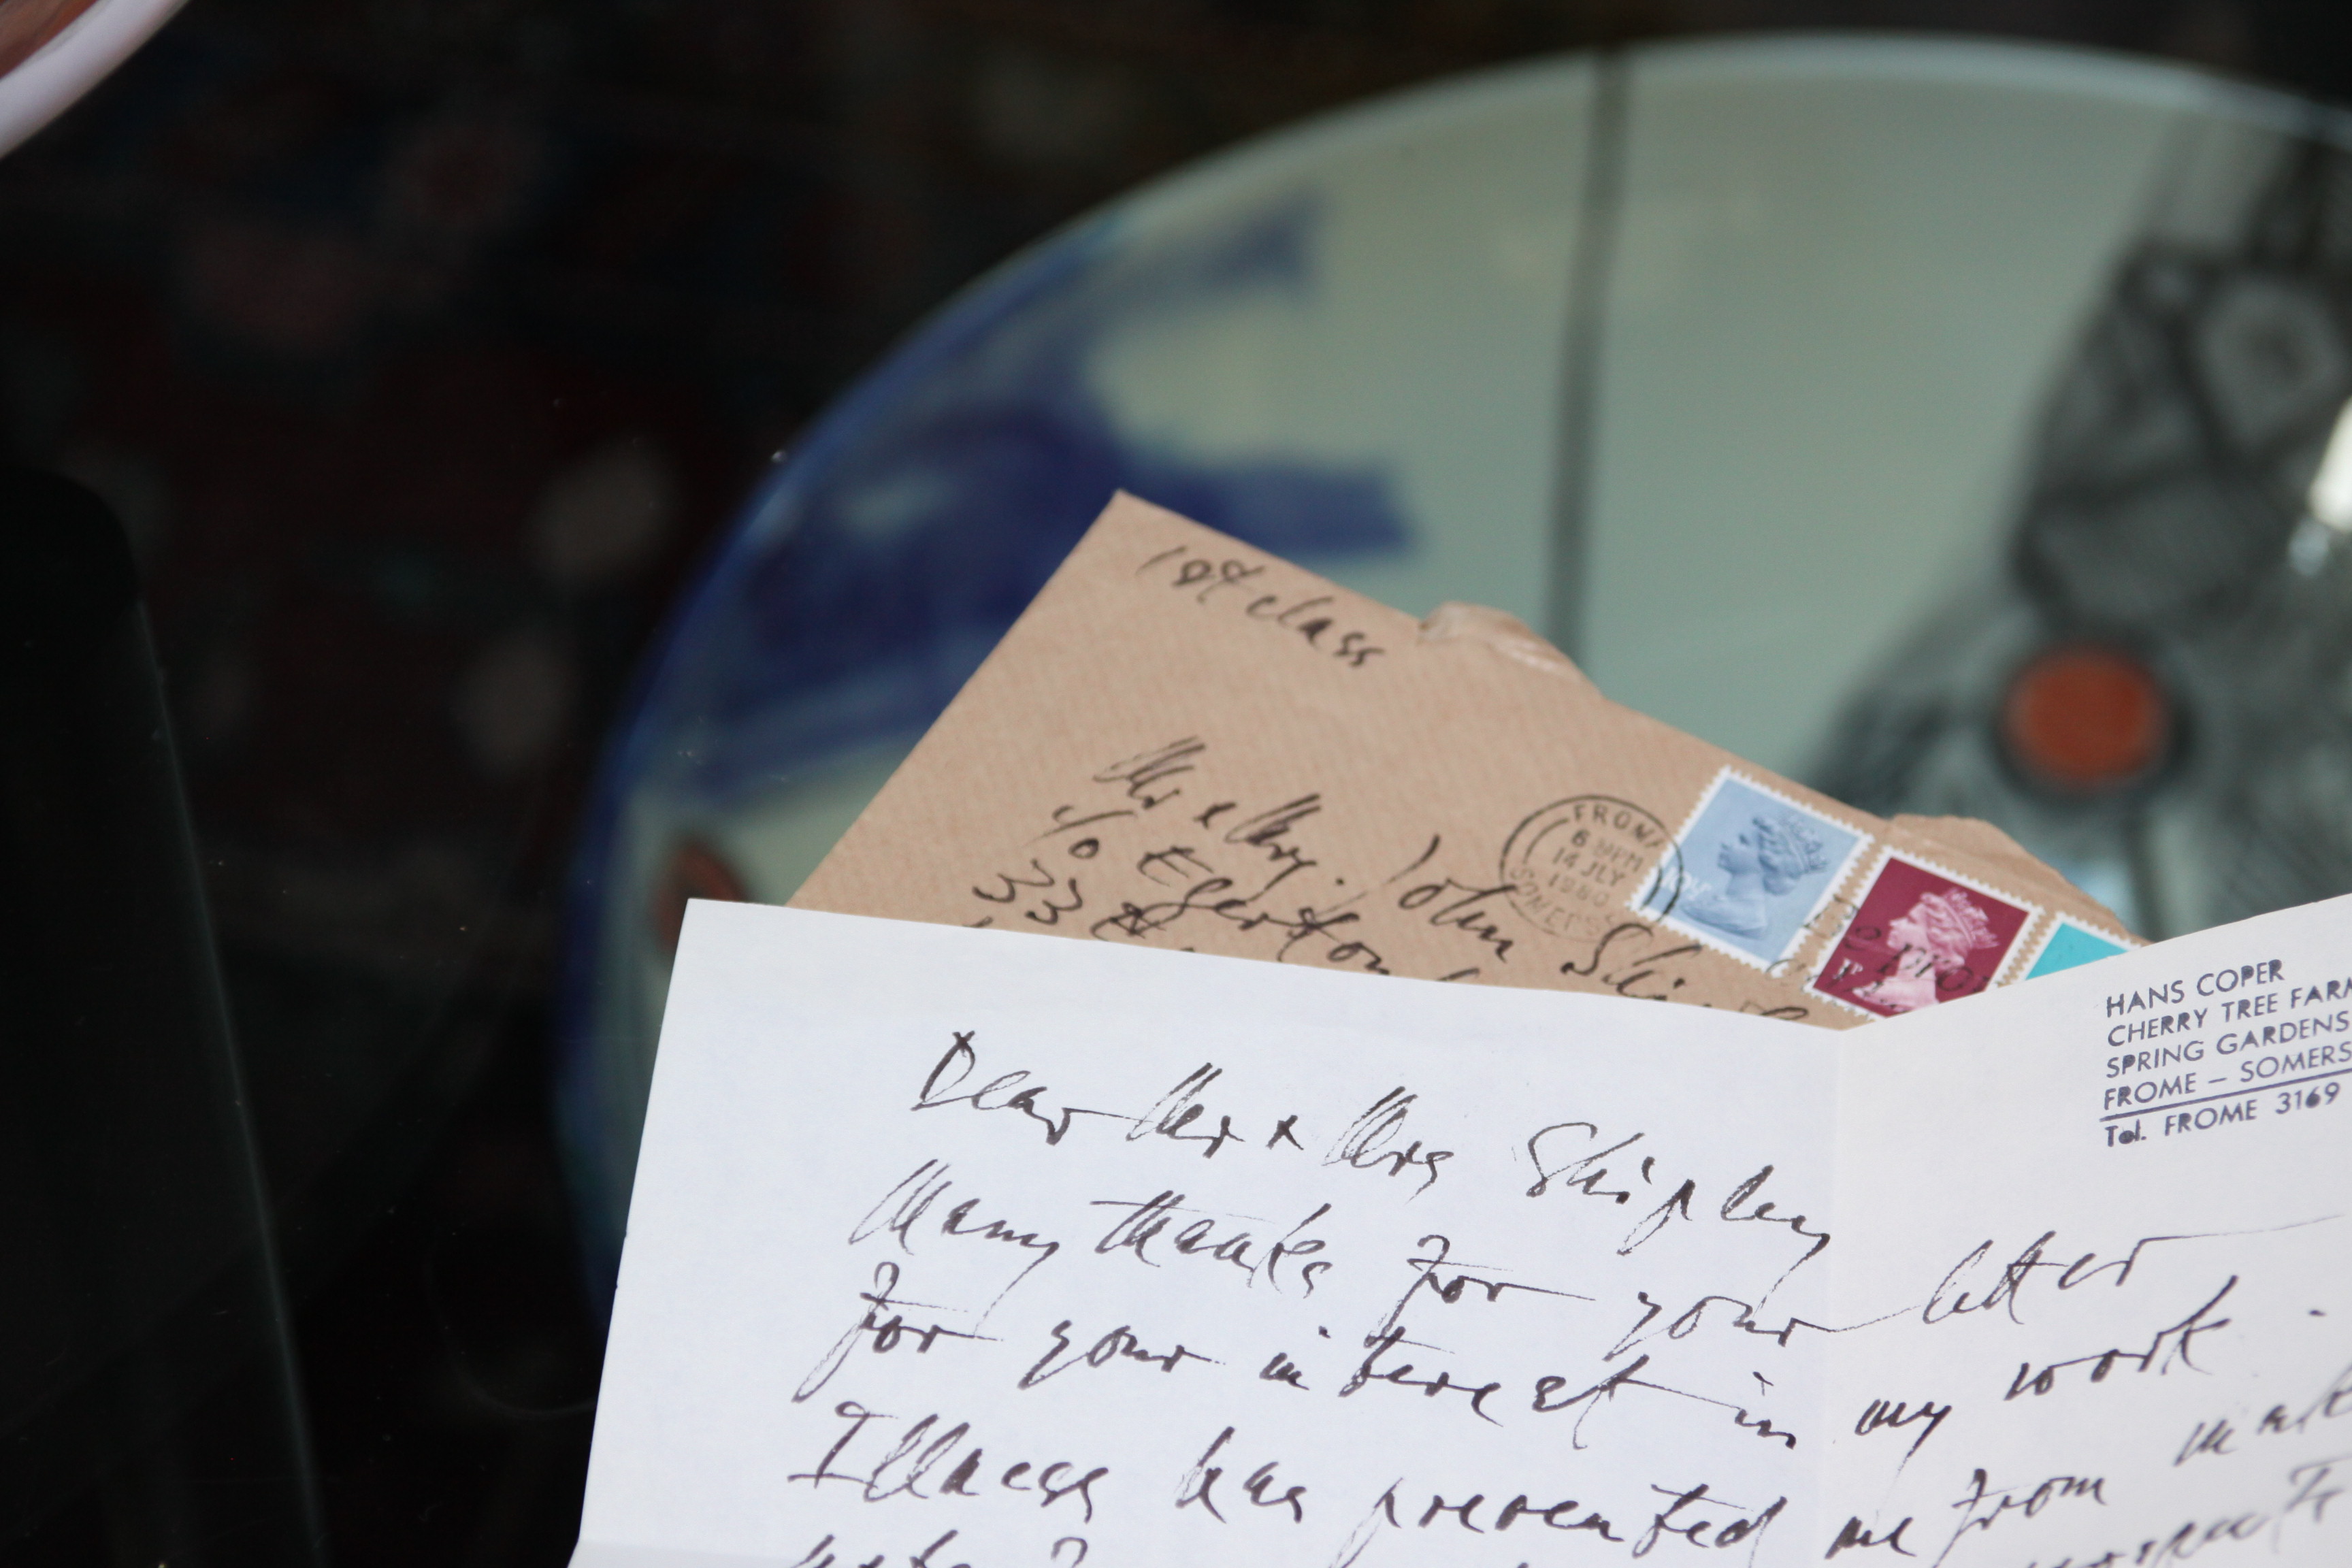 1st class
Mr & Mrs. John Shi
c/o Egerton
33
FROME
6 PM
14 JLY
1980
SOMERSE
HANS COPER
CHERRY TREE FARM
SPRING GARDENS
FROME – SOMERS
Tel. FROME 3169
Dear Mr & Mrs Shipley
Many thanks for your letter
for your interest in my work.
Illness has prevented me from